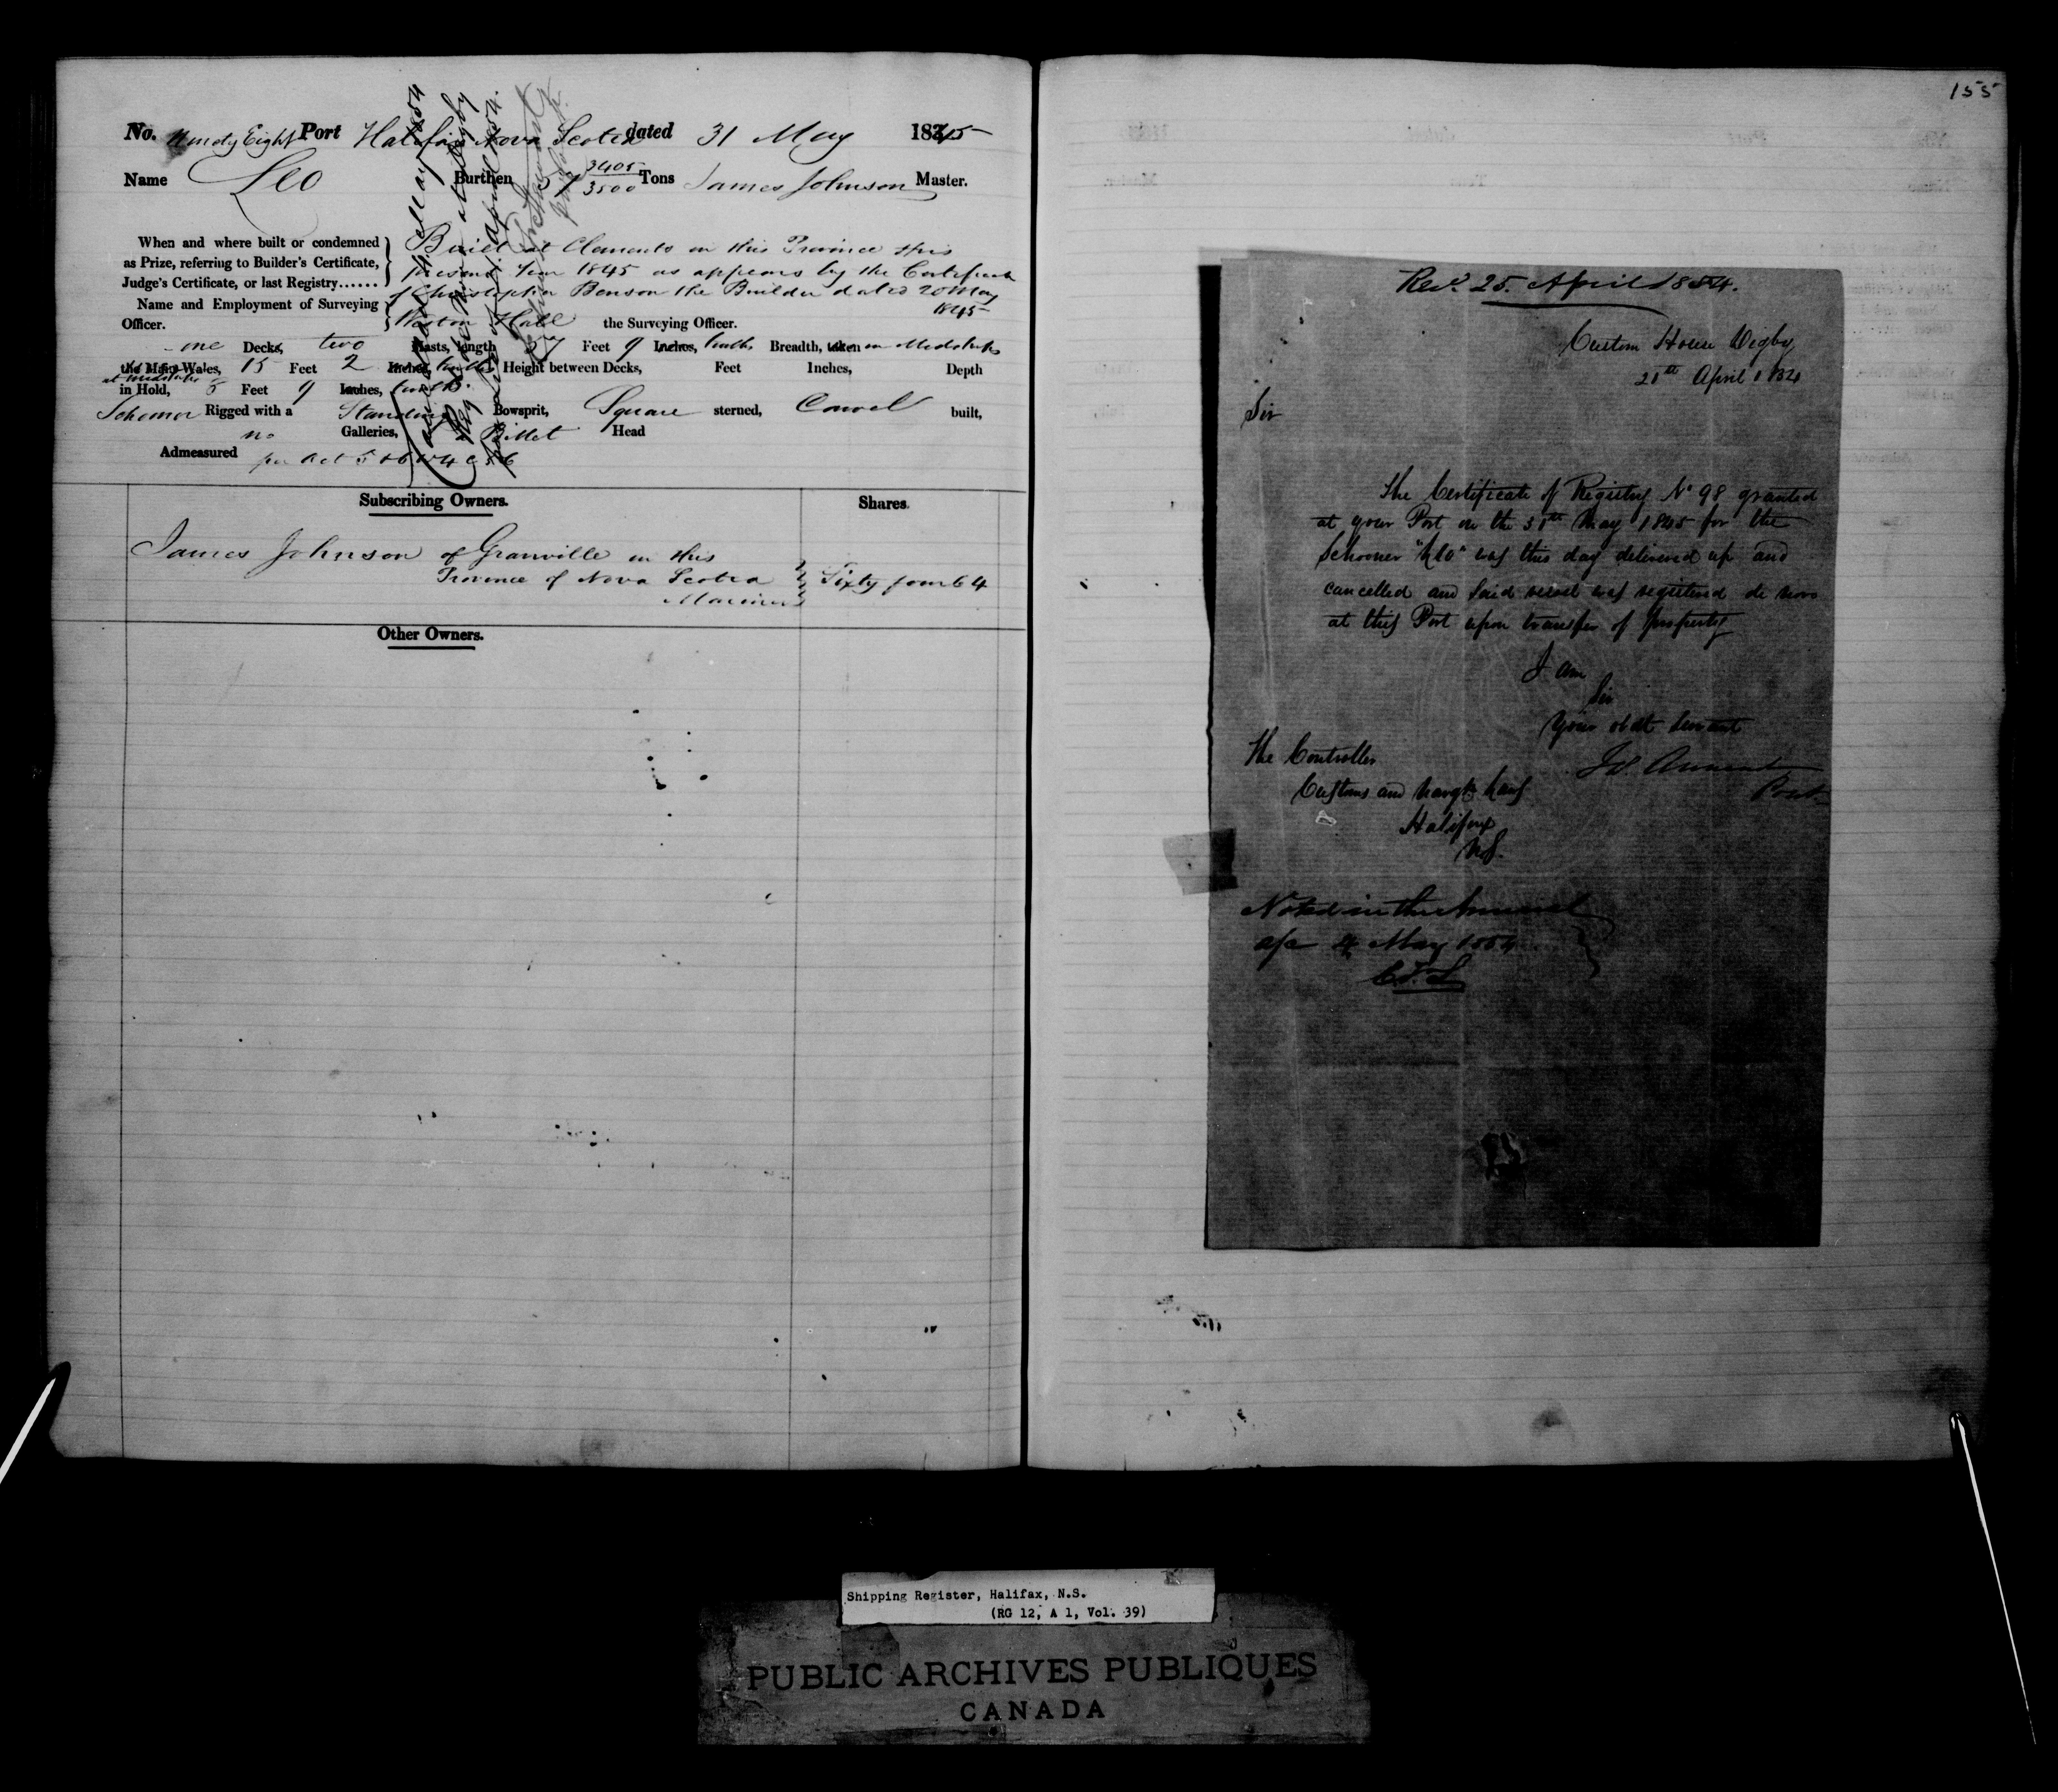 No. Ninety Eight Port Halifax Nova Scotia dated 31 May 1845
Name Leo Burthen 57 3405/3500 Tons James Johnson Master.
When and where built or condemned
as Prize, referring to Builder's Certificate,
Judge's Certificate, or last Registry......
Built at Clements in this Province this
present Year 1845 as appears by the Certificate
of Christopher Benson the Builder dated 20 May
1845
Name and Employment of Surveying
Officer.
Weston Hall the Surveying Officer.
one Decks, two Masts, length 57 Feet 9 Inches, tenths Breadth, taken in Midships
the Main Wales, 15 Feet 2 Inches, tenths Height between Decks, Feet Inches, Depth
at Midships
in Hold, 8 Feet 9 Inches, tenths
Schooner Rigged with a Standing Bowsprit, Square sterned, Carvel built,
no Galleries, Billet Head
Admeasured per Act 5 & 6 W 4 C 56
4 May 1854
Reg de novo at Digby
April 1854.
Subscribing Owners.
Shares.
James Johnson of Granville in this
Province of Nova Scotia
Mariner
Sixty four 64
Other Owners.
155
Recd. 25. April 1854.
Custom House Digby
21st April 1854
Sir
The Certificate of Registry No 98 granted
at your Port on the 31st May 1845 for the
Schooner "Leo" was this day delivered up and
cancelled and said vessel was registered de novo
at this Port upon transfer of property
I am
Sir
Your obdt Servant
The Controller
Customs and Navgtn Laws
Halifax
N.S.
Noted in the Annual
a/c 4 May 1854
Shipping Register, Halifax, N.S.
(RG 12, A 1, Vol. 39)
PUBLIC ARCHIVES PUBLIQUES
CANADA